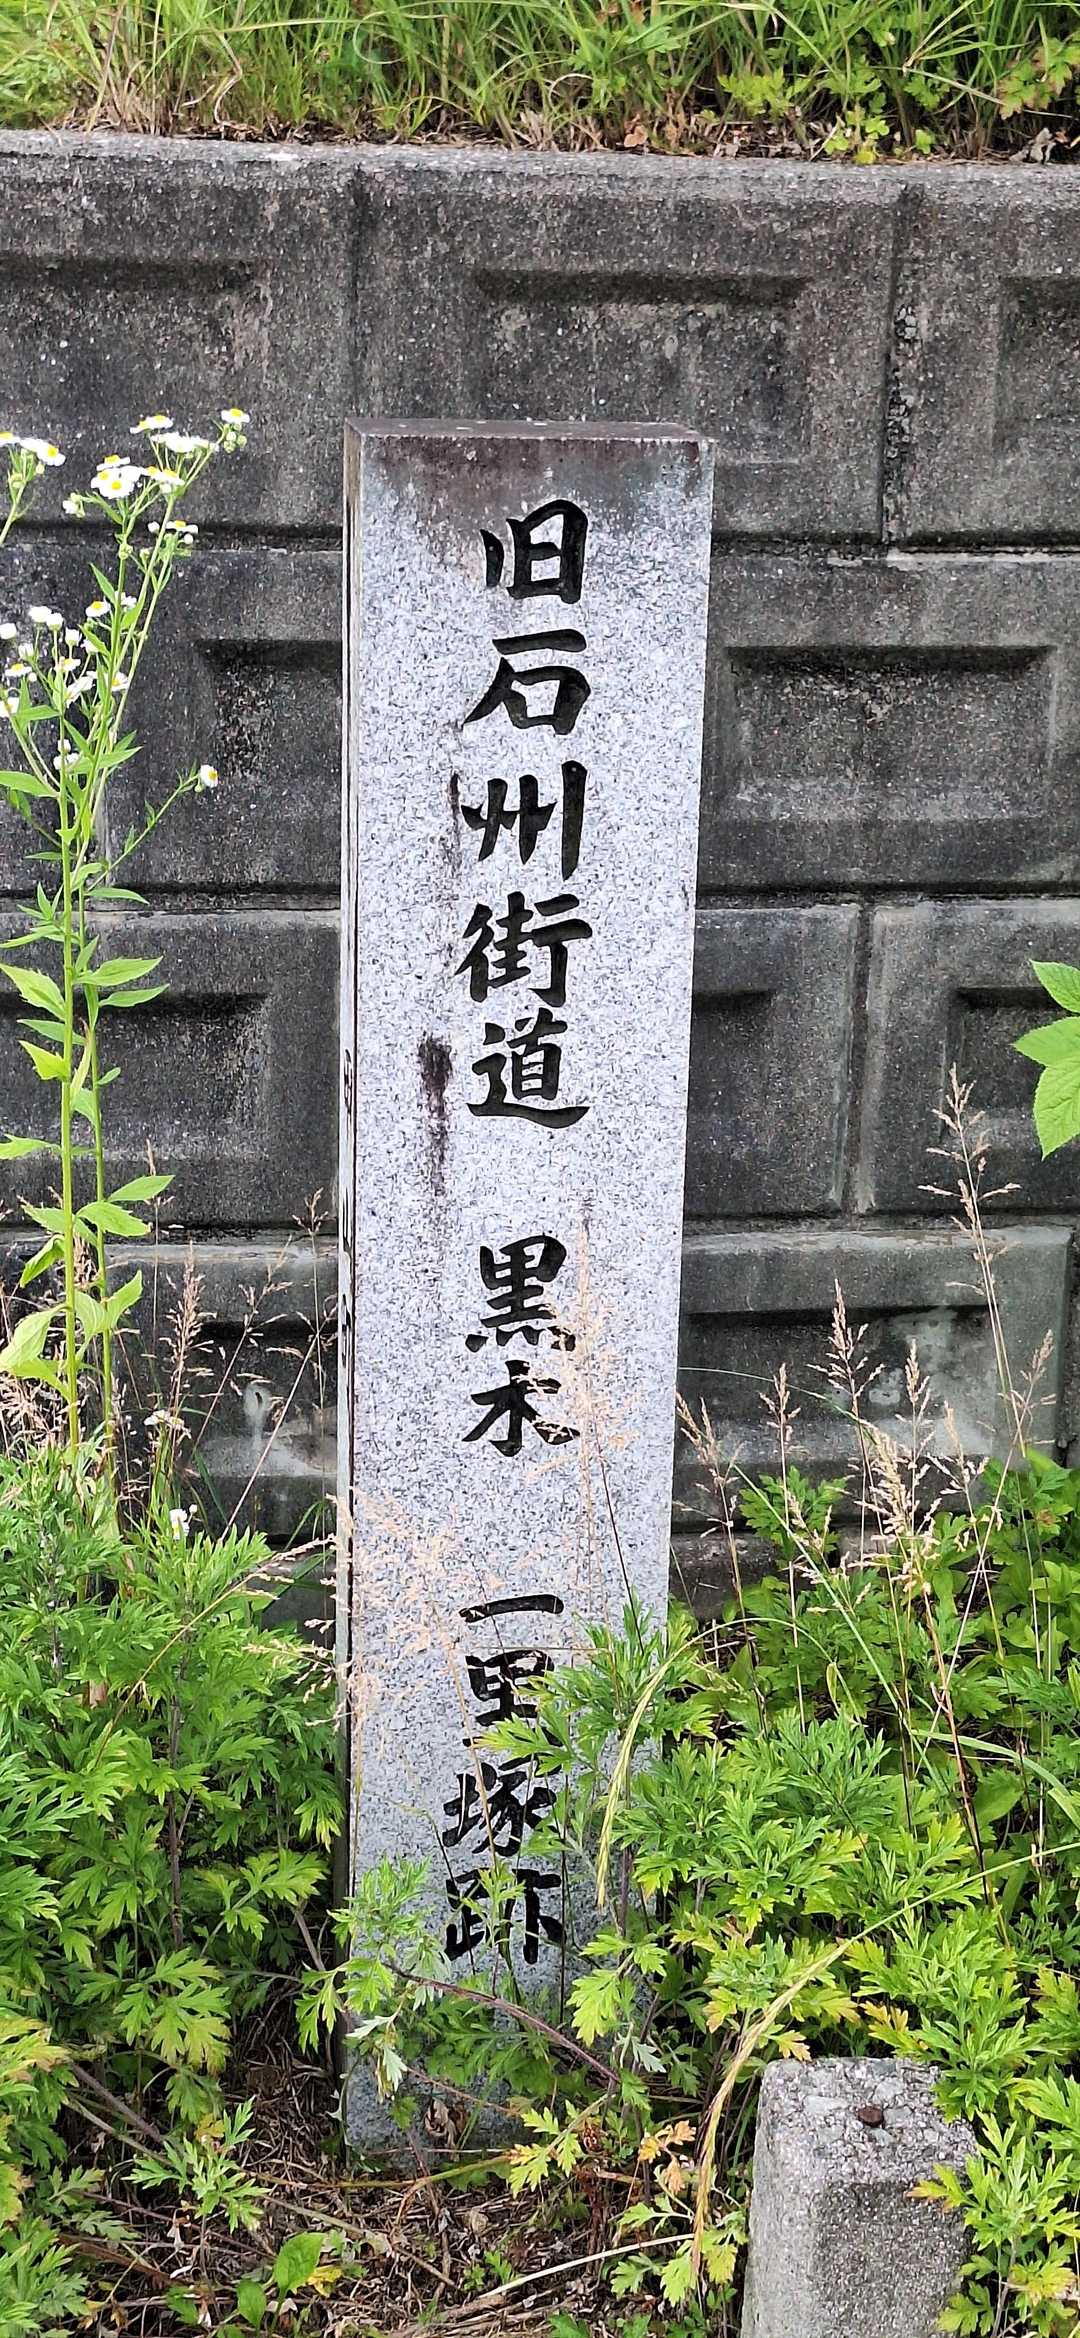 旧石州街道 黒木 一里塚跡